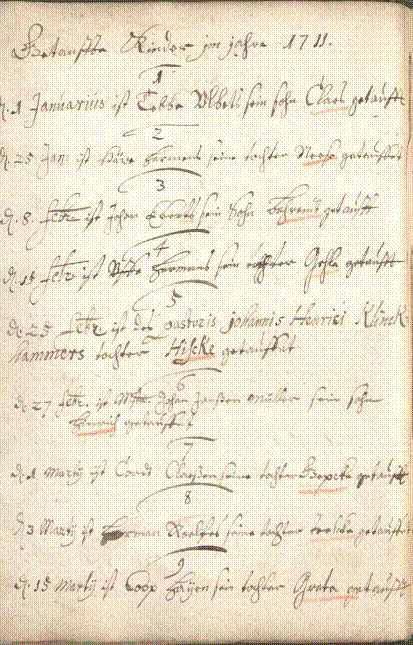 Getauffte Kinder im jahre 1711.
1
d. 1 Januarius ist Ubbets sein sohn Claes getaufft
2
d. 25 Jan. ist Harmens seine tochter getauffet
3
d. 8 Febr. ist Johan Everts sein Sohn Behrend getaufft
4
d. 15 Febr. ist Harmens sein tochter Geske getaufft
5
d. 25 Febr. ist des pastoris Johannis Henrici Klinck-
hammers tochter Hiscke getauffet
6
d. 27 Febr. ist Johan Janßen Müller sein sohn
Henrich getaufft
7
d. 1 Martÿ ist Cordt Claeßen seine tochter getaufft
8
d. 3 Martÿ ist Harman Roelfes seine tochter getauffet
9
d. 15 Martÿ ist Coop sein tochter Greta getaufft